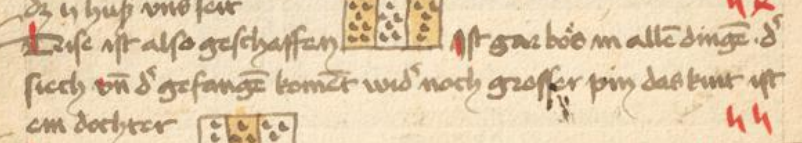 dz ij huß vns seit
Dise ist also geschaffen Ist gar boͤs in allē dingē · dʼ
siech vn̄ dʼ gefangē komēt widʼ noch grosser pin das kint ist
ein dochter